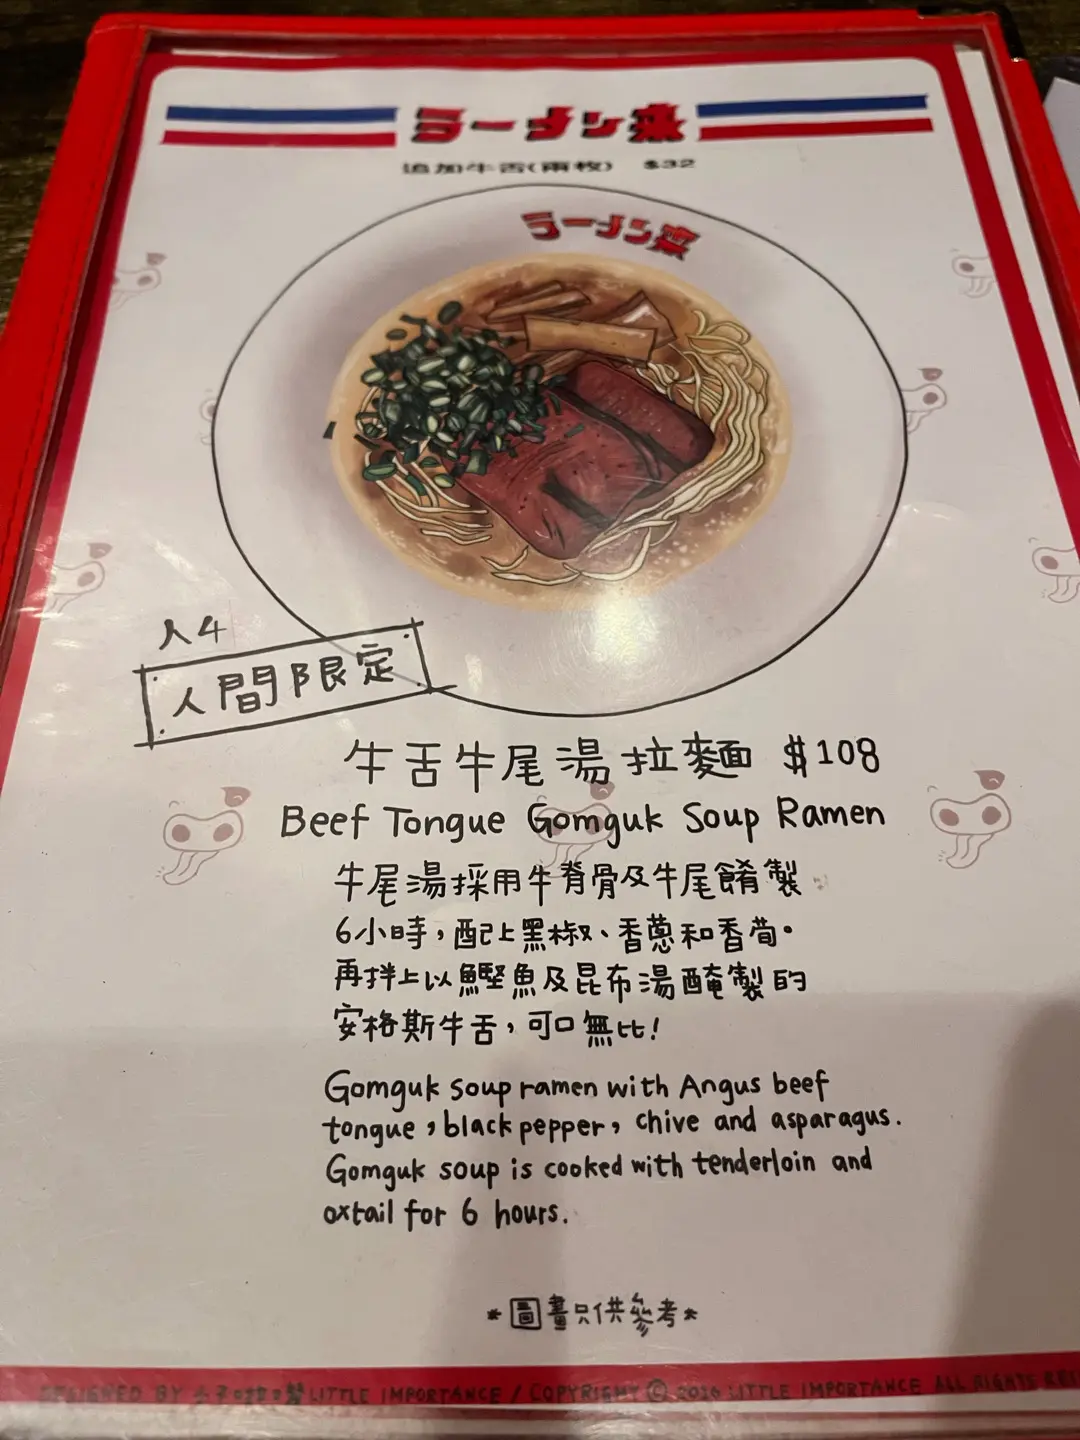 ラーメン来
追加牛舌(兩枚) $32
ラーメン来
人4
人間限定
牛舌牛尾湯拉麵 $108
Beef Tongue Gomguk Soup Ramen
牛尾湯採用牛脊骨及牛尾餚製
6小時，配上黑椒、香蔥和香荀。
再拌上以鰹魚及昆布湯醃製的
安格斯牛舌，可口無比！
Gomguk soup ramen with Angus beef
tongue, black pepper, chive and asparagus.
Gomguk soup is cooked with tenderloin and
oxtail for 6 hours.
*圖畫只供參考*
DESIGNED BY LITTLE IMPORTANCE / COPYRIGHT © 2020 LITTLE IMPORTANCE ALL RIGHTS